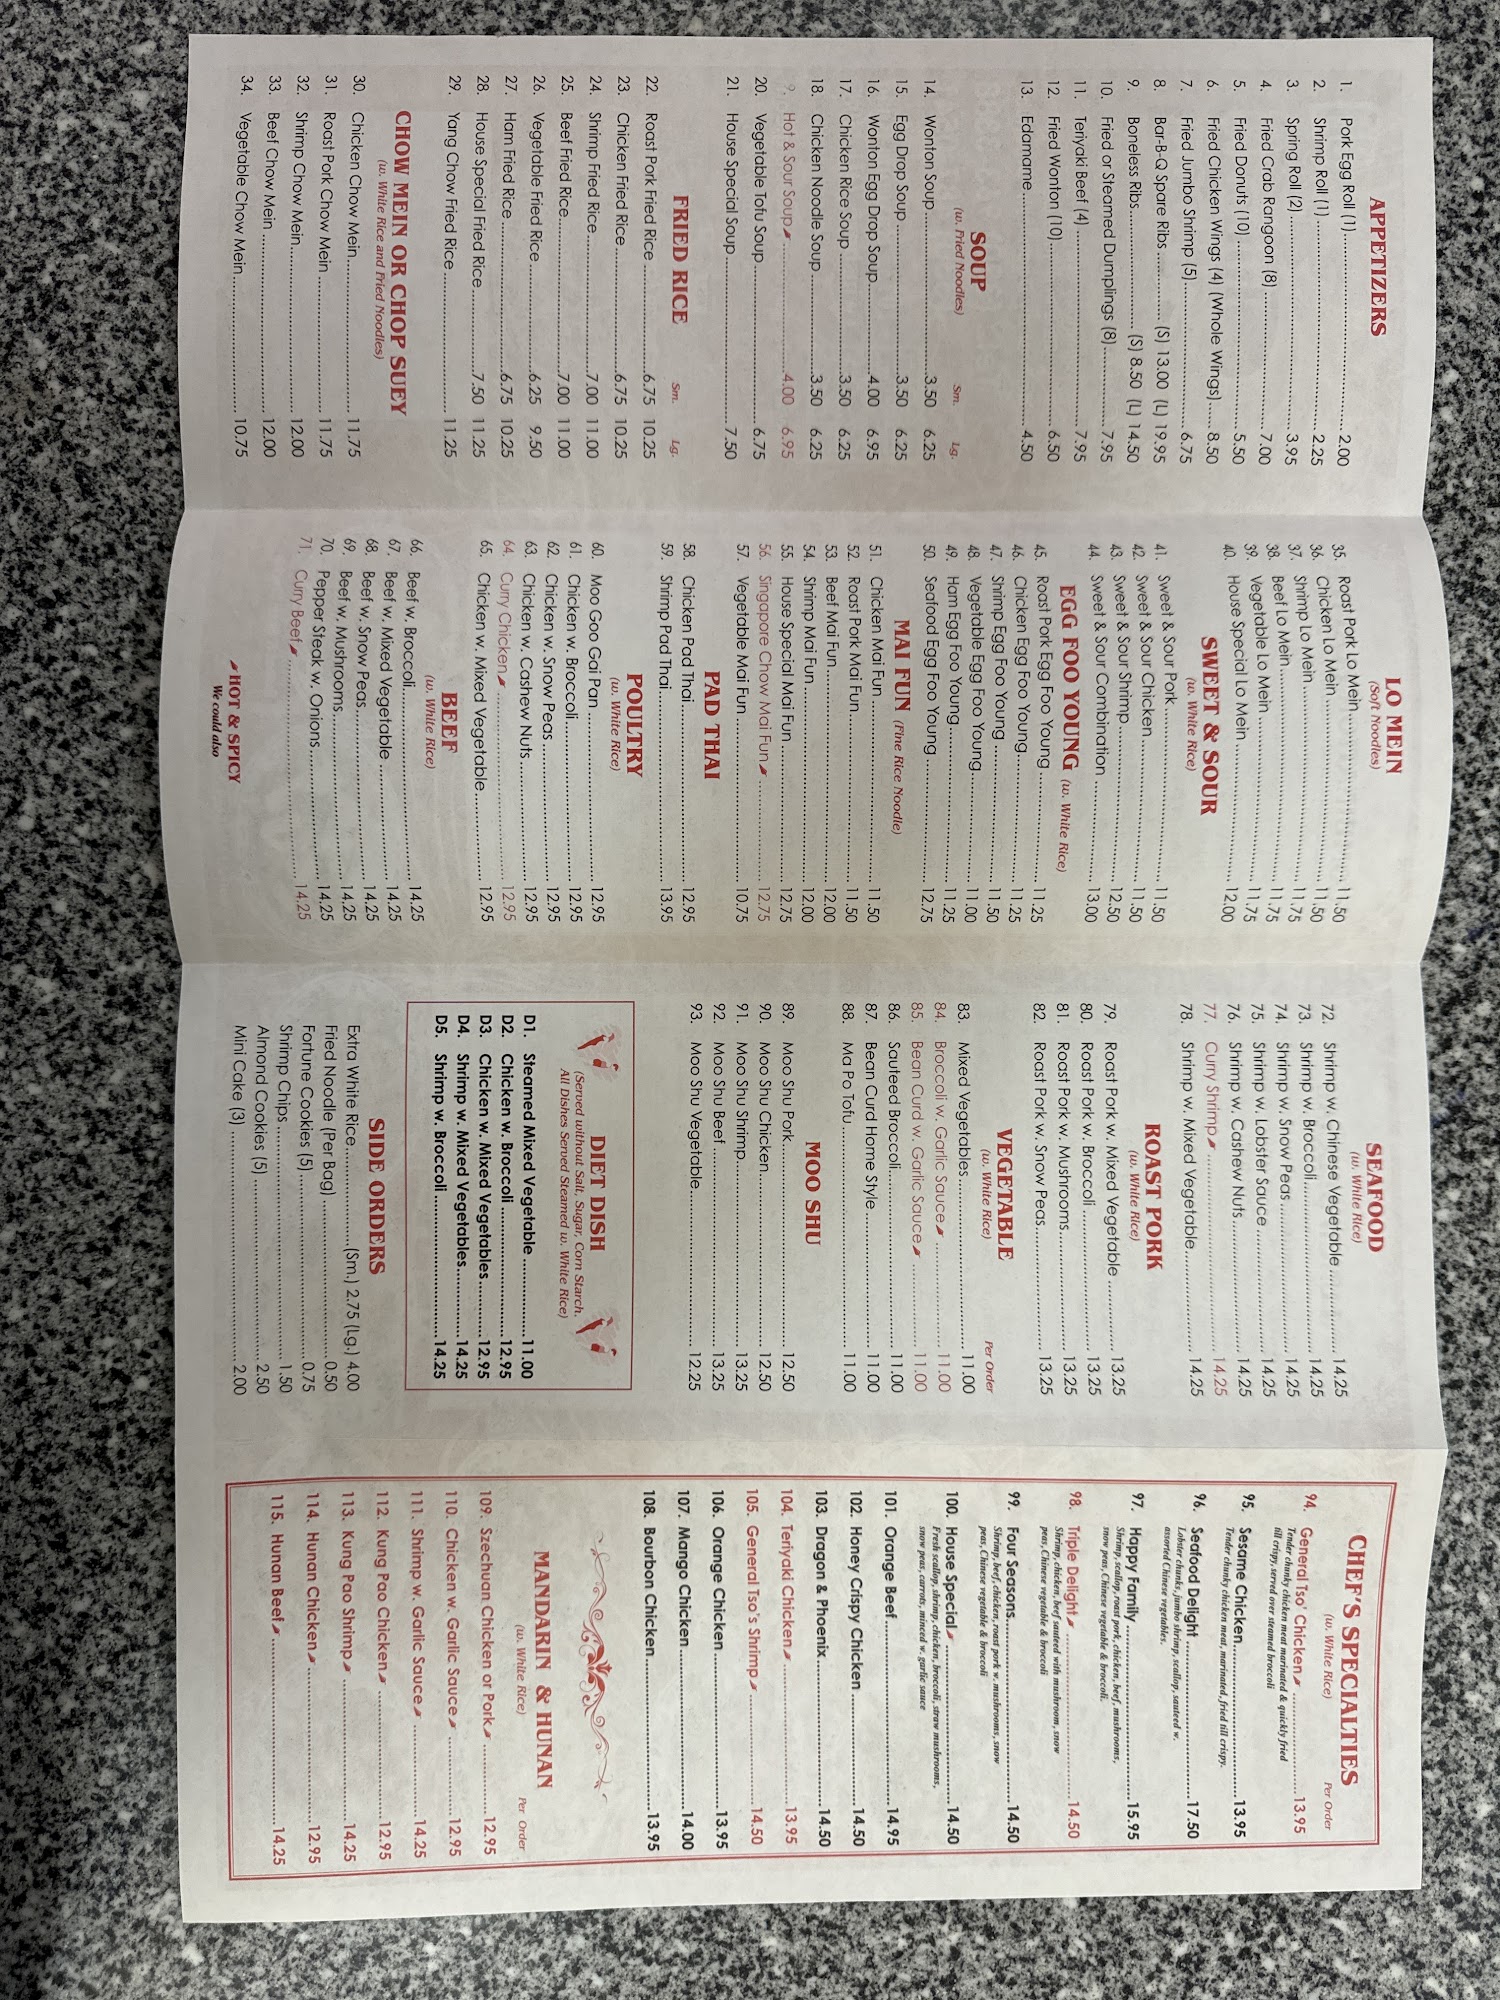 APPETIZERS
1. Pork Egg Roll (1)........ 2.00
2. Shrimp Roll (1)........ 2.25
3. Spring Roll (2)........ 3.95
4. Fried Crab Rangoon (8)........ 7.00
5. Fried Donuts (10)........ 5.50
6. Fried Chicken Wings (4) (Whole Wings)..... 8.50
7. Fried Jumbo Shrimp (5)........ 6.75
8. Bar-B-Q Spare Ribs ........ (S) 13.00 (L) 19.95
9. Boneless Ribs........ (S) 8.50 (L) 14.50
10. Fried or Steamed Dumplings (8)........ 7.95
11. Teriyaki Beef (4)........ 7.95
12. Fried Wonton (10)........ 6.50
13. Edamame........ 4.50
SOUP
(w. Fried Noodles) Sm. Lg.
14. Wonton Soup........3.50 6.25
15. Egg Drop Soup........3.50 6.25
16. Wonton Egg Drop Soup........4.00 6.95
17. Chicken Rice Soup........3.50 6.25
18. Chicken Noodle Soup........3.50 6.25
Hot & Sour Soup........4.00 6.95
20. Vegetable Tofu Soup........ 6.75
21. House Special Soup........ 7.50
FRIED RICE Sm. Lg.
22. Roast Pork Fried Rice........6.75 10.25
23. Chicken Fried Rice........6.75 10.25
24. Shrimp Fried Rice........7.00 11.00
25. Beef Fried Rice........7.00 11.00
26. Vegetable Fried Rice........6.25 9.50
27. Ham Fried Rice........6.75 10.25
28. House Special Fried Rice........7.50 11.25
29. Yang Chow Fried Rice........ 11.25
CHOW MEIN OR CHOP SUEY
(w. White Rice and Fried Noodles)
30. Chicken Chow Mein........ 11.75
31. Roast Pork Chow Mein........ 11.75
32. Shrimp Chow Mein........ 12.00
33. Beef Chow Mein........ 12.00
34. Vegetable Chow Mein........ 10.75
LO MEIN
(Soft Noodles)
35. Roast Pork Lo Mein........11.50
36. Chicken Lo Mein........11.50
37. Shrimp Lo Mein........11.75
38. Beef Lo Mein........11.75
39. Vegetable Lo Mein........11.75
40. House Special Lo Mein........12.00
SWEET & SOUR
(w. White Rice)
41. Sweet & Sour Pork........11.50
42. Sweet & Sour Chicken........11.50
43. Sweet & Sour Shrimp........12.50
44. Sweet & Sour Combination........13.00
EGG FOO YOUNG (w. White Rice)
45. Roast Pork Egg Foo Young........11.25
46. Chicken Egg Foo Young........11.25
47. Shrimp Egg Foo Young........11.50
48. Vegetable Egg Foo Young........11.00
49. Ham Egg Foo Young........11.25
50. Seafood Egg Foo Young........12.75
MAI FUN (Fine Rice Noodle)
51. Chicken Mai Fun........11.50
52. Roast Pork Mai Fun........11.50
53. Beef Mai Fun........12.00
54. Shrimp Mai Fun........12.00
55. House Special Mai Fun........12.75
56. Singapore Chow Mai Fun........12.75
57. Vegetable Mai Fun........10.75
PAD THAI
58. Chicken Pad Thai........12.95
59. Shrimp Pad Thai........13.95
POULTRY
(w. White Rice)
60. Moo Goo Gai Pan........12.95
61. Chicken w. Broccoli........12.95
62. Chicken w. Snow Peas........12.95
63. Chicken w. Cashew Nuts........12.95
64. Curry Chicken........12.95
65. Chicken w. Mixed Vegetable........12.95
BEEF
(w. White Rice)
66. Beef w. Broccoli........14.25
67. Beef w. Mixed Vegetable........14.25
68. Beef w. Snow Peas........14.25
69. Beef w. Mushrooms........14.25
70. Pepper Steak w. Onions........14.25
71. Curry Beef........14.25
HOT & SPICY
We could also
SEAFOOD
(w. White Rice)
72. Shrimp w. Chinese Vegetable........ 14.25
73. Shrimp w. Broccoli........ 14.25
74. Shrimp w. Snow Peas........ 14.25
75. Shrimp w. Lobster Sauce........ 14.25
76. Shrimp w. Cashew Nuts........ 14.25
77. Curry Shrimp........ 14.25
78. Shrimp w. Mixed Vegetable........ 14.25
ROAST PORK
(w. White Rice)
79. Roast Pork w. Mixed Vegetable........ 13.25
80. Roast Pork w. Broccoli........ 13.25
81. Roast Pork w. Mushrooms........ 13.25
82. Roast Pork w. Snow Peas........ 13.25
VEGETABLE
(w. White Rice) Per Order
83. Mixed Vegetables........ 11.00
84. Broccoli w. Garlic Sauce........ 11.00
85. Bean Curd w. Garlic Sauce........ 11.00
86. Sauteed Broccoli........ 11.00
87. Bean Curd Home Style........ 11.00
88. Ma Po Tofu........ 11.00
MOO SHU
89. Moo Shu Pork........ 12.50
90. Moo Shu Chicken........ 12.50
91. Moo Shu Shrimp........ 13.25
92. Moo Shu Beef........ 13.25
93. Moo Shu Vegetable........ 12.25
DIET DISH
(Served without Salt, Sugar, Corn Starch.
All Dishes Served Steamed w. White Rice)
D1. Steamed Mixed Vegetable........11.00
D2. Chicken w. Broccoli........12.95
D3. Chicken w. Mixed Vegetables........12.95
D4. Shrimp w. Mixed Vegetables........14.25
D5. Shrimp w. Broccoli........14.25
SIDE ORDERS
Extra White Rice........(Sm.) 2.75 (Lg.) 4.00
Fried Noodle (Per Bag)........ 0.50
Fortune Cookies (5)........ 0.75
Shrimp Chips........ 1.50
Almond Cookies (5)........ 2.50
Mini Cake (3)........ 2.00
CHEF'S SPECIALTIES
(w. White Rice) Per Order
94. General Tso' Chicken........13.95
Tender chunky chicken meat marinated & quickly fried
till crispy, served over steamed broccoli
95. Sesame Chicken........13.95
Tender chunky chicken meat, marinated, fried till crispy.
96. Seafood Delight........17.50
Lobster chunks, jumbo shrimp, scallop, sauteed w.
assorted Chinese vegetables.
97. Happy Family........15.95
Shrimp, scallop, roast pork, chicken, beef, mushrooms,
snow peas, Chinese vegetable & broccoli.
98. Triple Delight........14.50
Shrimp, chicken, beef sauteed with mushroom, snow
peas, Chinese vegetable & broccoli
99. Four Seasons........14.50
Shrimp, beef, chicken, roast pork w. mushrooms, snow
peas, Chinese vegetable & broccoli
100. House Special........14.50
Fresh scallop, shrimp, chicken, broccoli, straw mushrooms,
snow peas, carrots, minced w. garlic sauce
101. Orange Beef........14.95
102. Honey Crispy Chicken........14.50
103. Dragon & Phoenix........14.50
104. Teriyaki Chicken........13.95
105. General Tso's Shrimp........14.50
106. Orange Chicken........13.95
107. Mango Chicken........14.00
108. Bourbon Chicken........13.95
MANDARIN & HUNAN
(w. White Rice) Per Order
109. Szechuan Chicken or Pork........12.95
110. Chicken w. Garlic Sauce........12.95
111. Shrimp w. Garlic Sauce........14.25
112. Kung Pao Chicken........12.95
113. Kung Pao Shrimp........14.25
114. Hunan Chicken........12.95
115. Hunan Beef........14.25